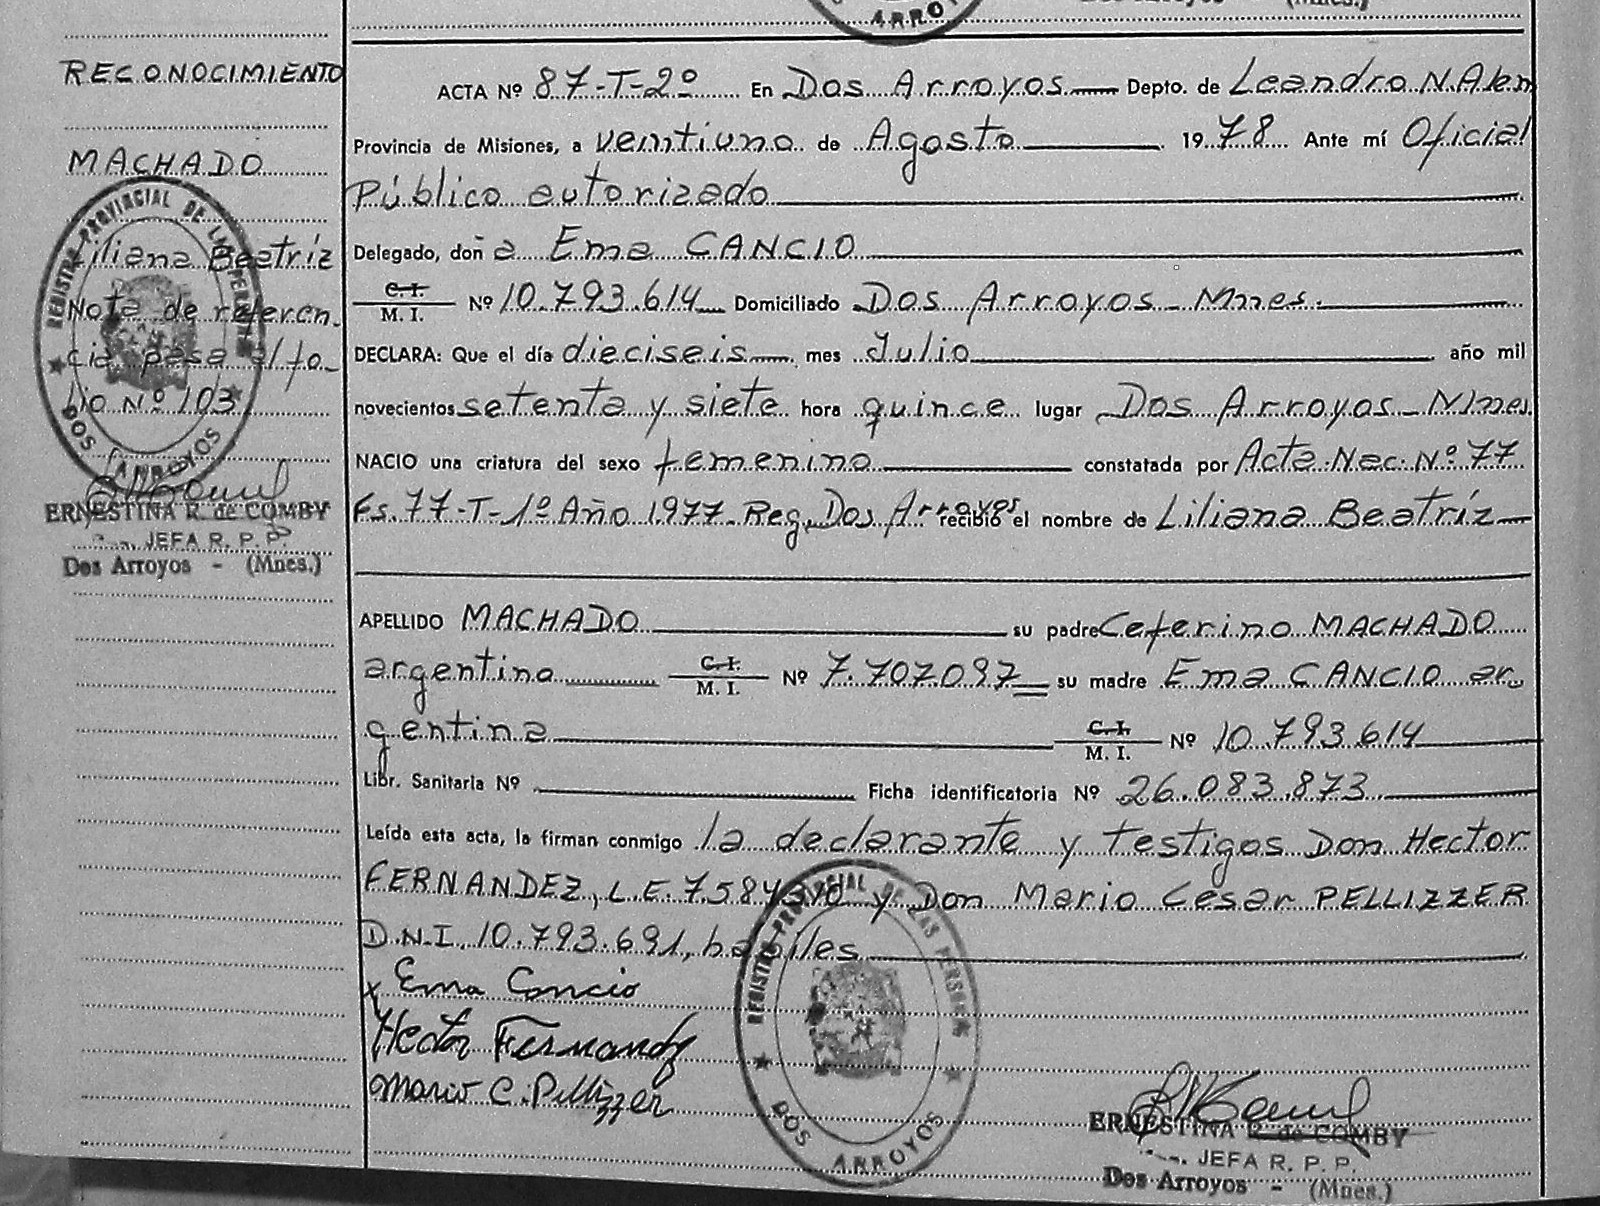 ARROY
Dos Arroyos - (Mnes.)
RECONOCIMIENTO
MACHADO
Liliana Beatríz
Nota de referen-
cia pasa al fo-
lio Nº 103
REGISTRO PROVINCIAL DE LAS PERSONAS
DOS ARROYOS
ERNESTINA R. de COMBY
JEFA R. P. P.
Dos Arroyos - (Mnes.)
ACTA Nº 87-T-2º En Dos Arroyos Depto. de Leandro N. Alem
Provincia de Misiones, a veintiuno de Agosto 1978 Ante mí Oficial
Público autorizado
Delegado, doña Ema CANCIO
C. I. M. I. Nº 10.793.614 Domiciliado Dos Arroyos - Mnes.
DECLARA: Que el día dieciseis mes Julio año mil
novecientos setenta y siete hora quince lugar Dos Arroyos - Mnes
NACIO una criatura del sexo femenino constatada por Acta Nac. Nº 77
Fs. 77-T-1º Año 1977 Reg. Dos Arroyos recibió el nombre de Liliana Beatríz
APELLIDO MACHADO su padre Ceferino MACHADO
argentino C. I. M. I. Nº 7.707.097 su madre Ema CANCIO ar-
gentina C. I. M. I. Nº 10.793.614
Libr. Sanitaria Nº Ficha identificatoria Nº 26.083.873
Leída esta acta, la firman conmigo la declarante y testigos Don Hector
FERNANDEZ, L.E. y Don Mario Cesar PELLIZZER
D.N.I. 10.793.691, habiles
x Ema Cancio
Hector Fernandez
Mario C. Pellizzer
REGISTRO PROVINCIAL DE LAS PERSONAS
DOS ARROYOS
ERNESTINA R. de COMBY
JEFA R. P. P.
Dos Arroyos - (Mnes.)